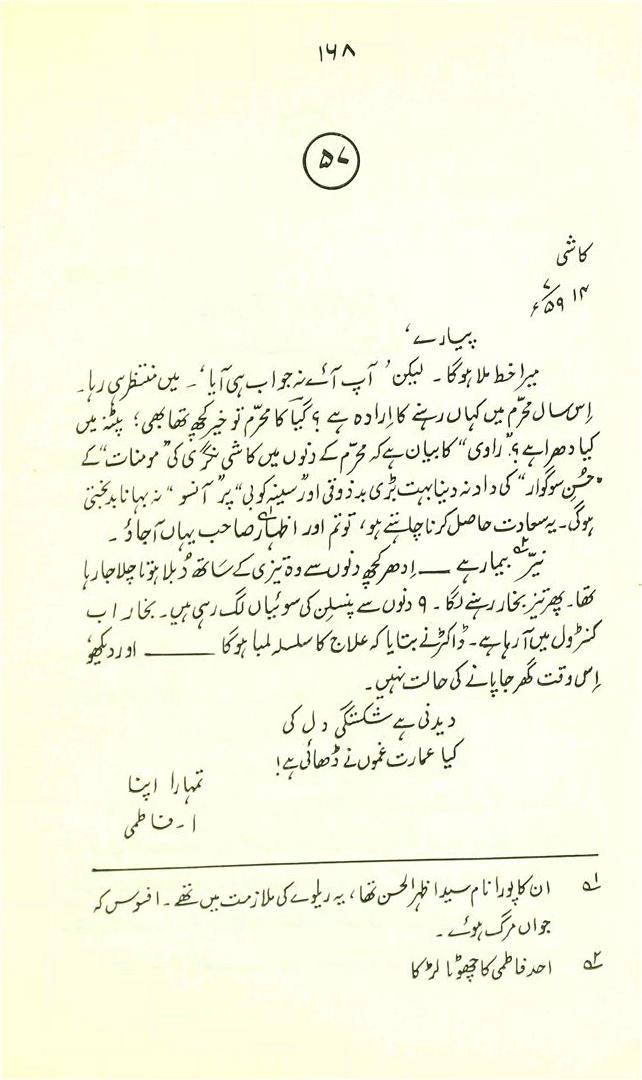 ۱۶۸
۵۷
کاشی
۱۴ ۷ ۵۹ء
پیارے،
میرا خط ملا ہوگا۔ لیکن ’آپ آئے نہ جواب ہی آیا‘۔ میں منتظر ہی رہا۔
اِس سال محرّم میں کہاں رہنے کا اِرادہ ہے؟ گیا کا محرّم تو خیر کچھ تھا بھی؛ پٹنہ میں
کیا دھرا ہے؟ ”راوی“ کا بیان ہے کہ محرّم کے دنوں میں کاشی نگری کی ”مومنات“ کے
”حُسنِ سوگوار“ کی داد نہ دینا بہت بڑی بدذوقی اور ”سینہ کوبی“ پر ”آنسو“ نہ بہانا بدبختی
ہوگی۔ یہ سعادت حاصل کرنا چاہتے ہو، تو تم اور اظہار۱ صاحب یہاں آجاؤ۔
نیّر۲ بیمار ہے —— اِدھر کچھ دنوں سے وہ تیزی کے ساتھ دُبلا ہوتا چلا جا رہا
تھا۔ پھر تیز بخار رہنے لگا۔ ۹ دنوں سے پنسلِن کی سوئیاں لگ رہی ہیں۔ بخار اب
کنٹرول میں آرہا ہے۔ ڈاکٹر نے بتایا کہ علاج کا سلسلہ لمبا ہوگا —— اور دیکھو،
اِس وقت گھر جا پانے کی حالت نہیں۔
دیدنی ہے شکستگی دل کی
کیا عمارت غموں نے ڈھائی ہے!
تمہارا اپنا
ا۔ فاطمی
۱ ان کا پورا نام سید اظہر الحسن تھا، یہ ریلوے کی ملازمت میں تھے۔ افسوس کہ
جواں مرگ ہوئے۔
۲ احد فاطمی کا چھوٹا لڑکا